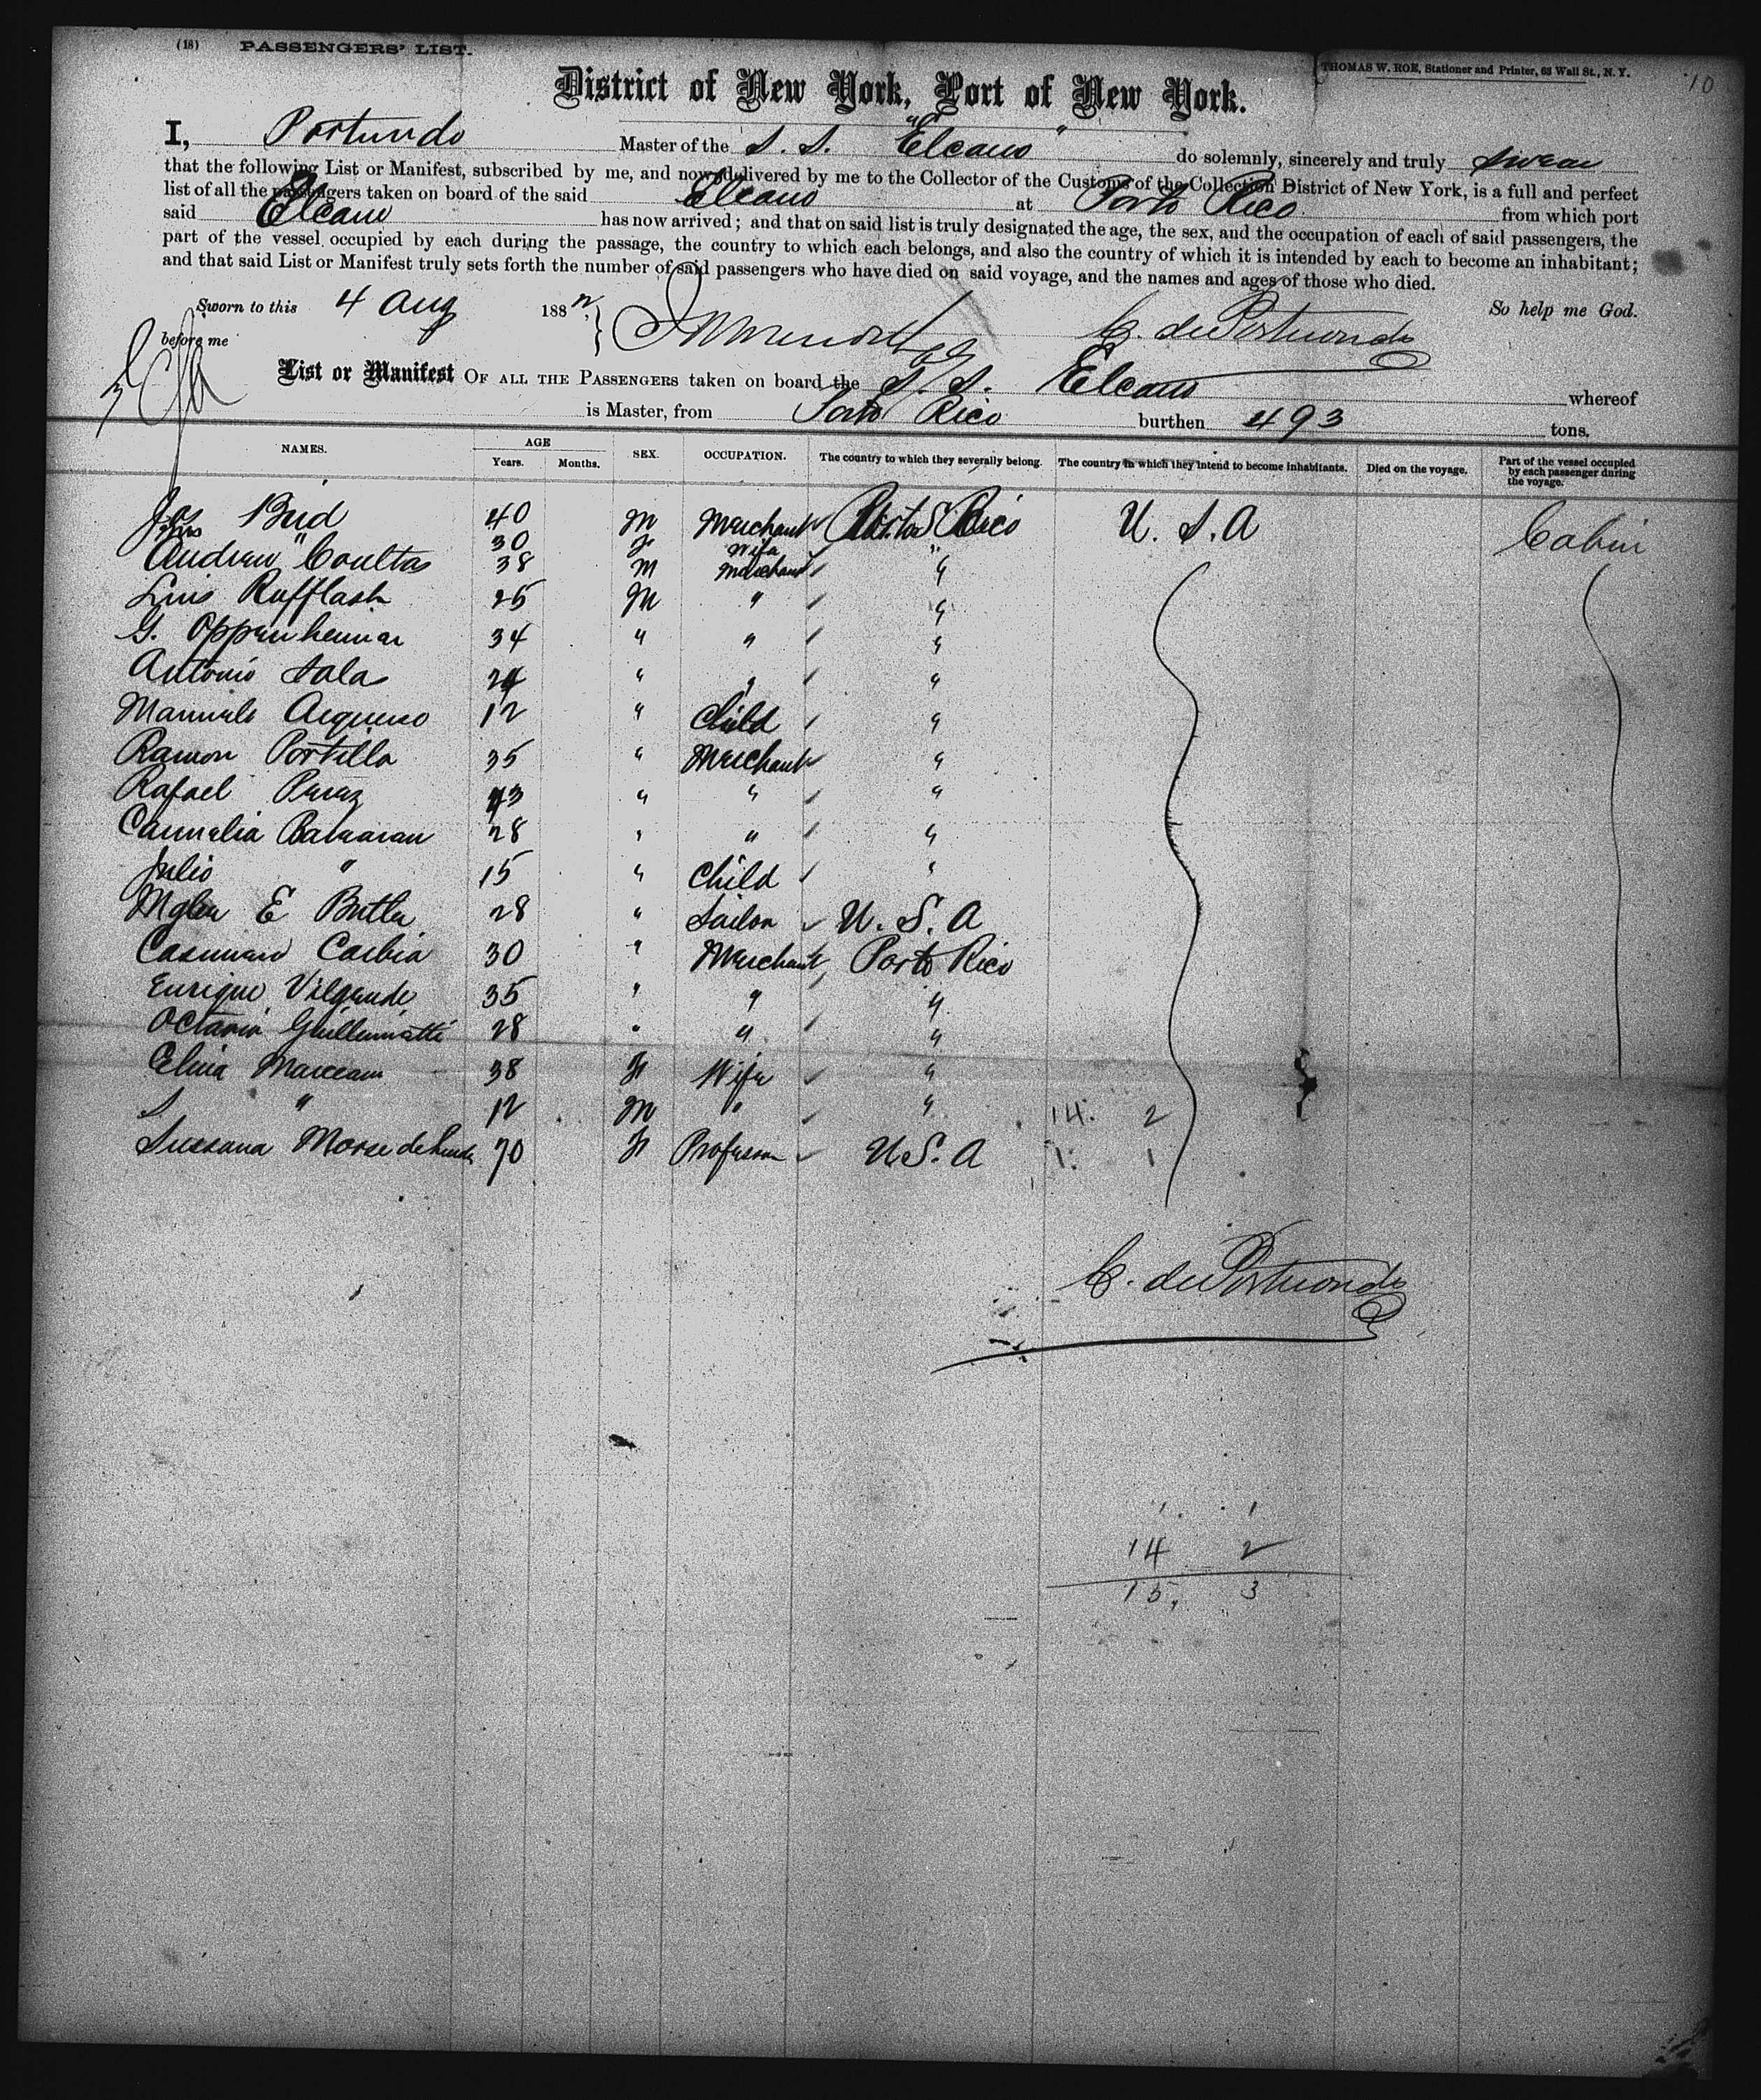 (18) PASSENGERS' LIST.
THOMAS W. ROE, Stationer and Printer, 63 Wall St., N. Y.
10
District of New York, Port of New York.
I, Portundo Master of the S. S. "Elcano" do solemnly, sincerely and truly swear
that the following List or Manifest, subscribed by me, and now delivered by me to the Collector of the Customs of the Collection District of New York, is a full and perfect
list of all the passengers taken on board of the said Elcano at Porto Rico from which port
said Elcano has now arrived; and that on said list is truly designated the age, the sex, and the occupation of each of said passengers, the
part of the vessel occupied by each during the passage, the country to which each belongs, and also the country of which it is intended by each to become an inhabitant;
and that said List or Manifest truly sets forth the number of said passengers who have died on said voyage, and the names and ages of those who died.
So help me God.
Sworn to this 4 Aug 188
before me
C. de Portuondo
List or Manifest OF ALL THE PASSENGERS taken on board the S. S. Elcano whereof
is Master, from Porto Rico burthen 493 tons.
NAMES. AGE Years. Months. SEX. OCCUPATION. The country to which they severally belong. The country in which they intend to become inhabitants. Died on the voyage. Part of the vessel occupied by each passenger during the voyage.
Jas Bird 40 M Merchant Porto Rico U. S. A Cabin
Mrs " 30 F Wife "
Andrew Coultas 38 M Merchant "
Luis Rufflash 25 M " "
G. Oppenheimer 34 " " "
Antonio Sala " " "
Manuelo 12 " Child "
Ramon Portilla 35 " Merchant "
Rafael Perez 43 " " "
28 " " "
Julio " 15 " Child "
E Butler 28 " Sailor U. S. A
30 " Merchant Porto Rico
Enrique 35 " " "
28 " " "
38 F Wife "
" 12 M " " 14. 2
Sussana Morse de 70 F Professor U.S. A 1. 1
C. de Portuondo
1. 1
14 2
15, 3